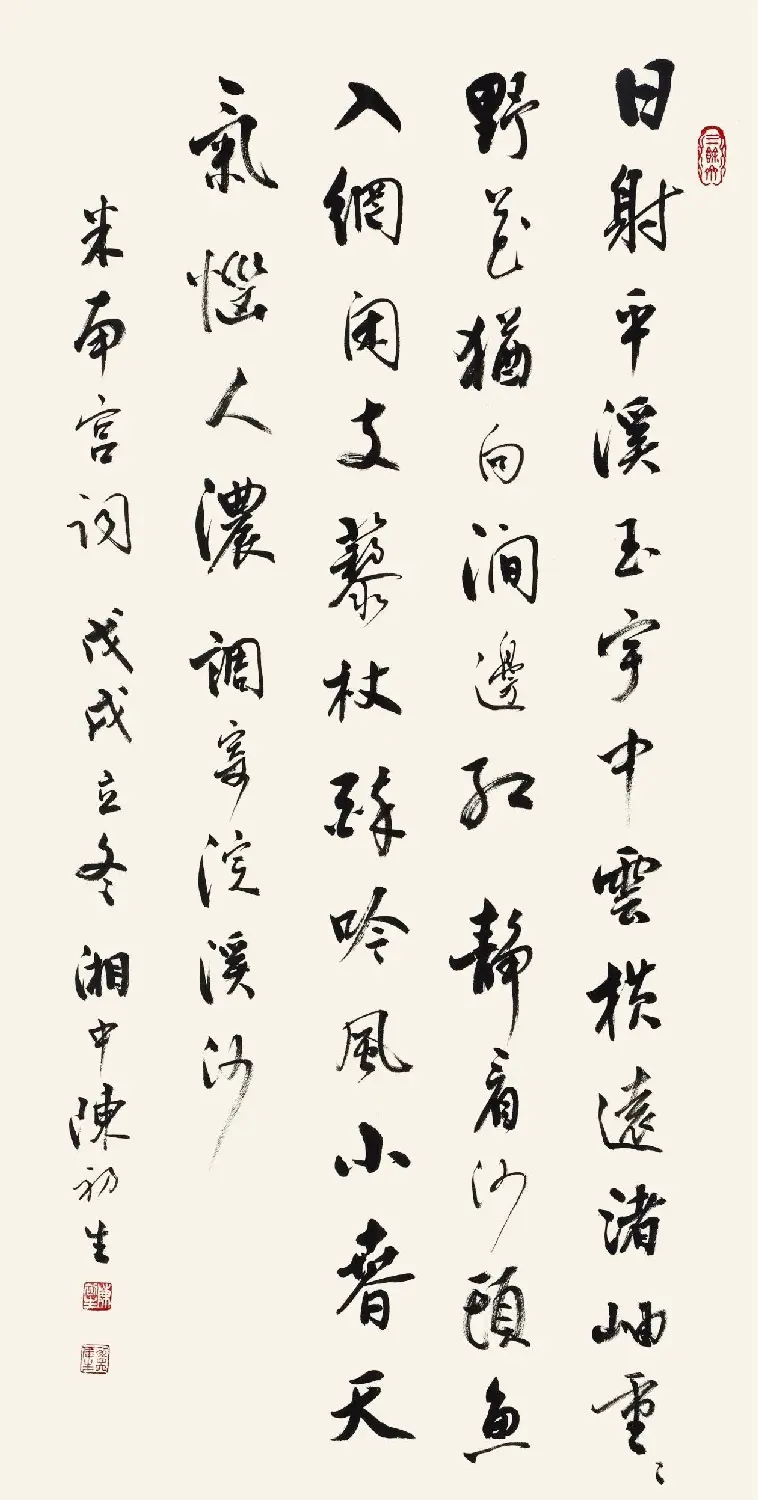 日射平溪玉宇中雲横遠渚岫重〻
野花猶向澗邊紅静看沙頭魚
入網閑支藜杖醉吟風小春天
氣惱人濃調寄浣溪沙
米南宫詞戊戌立冬湘中陳初生